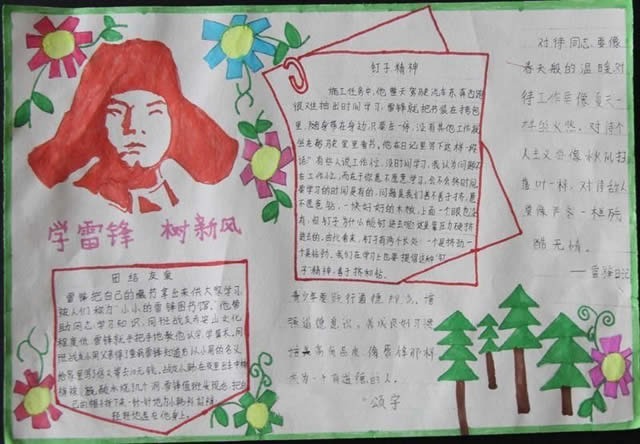 学雷锋 树新风
团结友爱
雷锋把自己的藏书拿出来供大家学习,
被人们称为"小小的雷锋图书馆",他帮
助同志学习知识,同班战友乔安山文化
程度低,雷锋就手把手地教他认字,学算术,同
给家里写了信又寄去10元钱,战友小韩在夜里出车棉
裤被 硫酸水烧几个洞,雷锋值班回来后,把自
己的帽子拆下来一针一针地为小韩补好裤,
轻轻地盖在他身上。
钉子精神
施工任务中,他整天驾驶汽车东奔西跑,
很难抽出时间学习,雷锋就把书装在挎包
里,随身带在身边,只要车一停,没有其他工作,就
坐在驾驶室里看书。他在日记里写下这样一段
话"有些人说工作忙、没时间学习,我认为问题不
在工作忙,而在于你愿不愿意学习,会不会挤时间。
要学习的时间是有的,问题是我们善不善于挤,愿
不愿意钻,一块好好的木板,上面一个眼也没
有,但钉子为什么能钉进去呢?这就是靠压力硬挤
进去的。由此看来,钉子有两个长处:一个是挤劲,一
个是钻劲。我们在学习上也要提倡这种"钉
子"精神,善于挤和钻。
对待同志要像
春天般的温暖,对
待工作要像夏天一
样火热,对待个
人主义要像秋风扫
落叶一样,对待敌人
要像严冬一样残
酷无情。
——雷锋日记
强道德意识。养成良好习惯
培养高尚品质,像雷锋那样
成为一个有道德的人。
颂宇